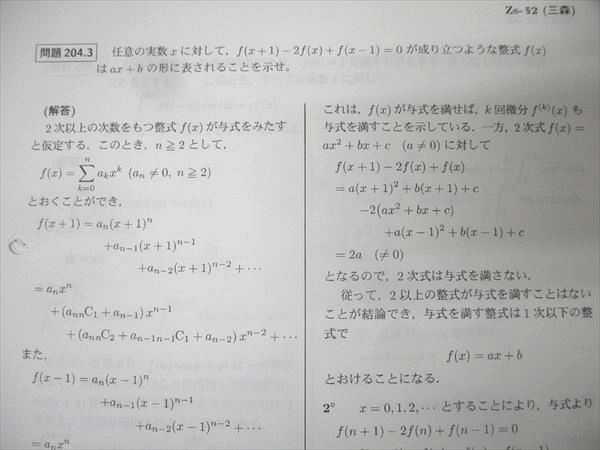 Z8-§2 (三森)
問題 204.3 任意の実数 x に対して，f(x+1)−2f(x)+f(x−1)=0 が成り立つような整式 f(x)
は ax+b の形に表されることを示せ。
(解答)
2次以上の次数をもつ整式 f(x) が与式をみたす
と仮定する．このとき，n≧2 として，
f(x) = ∑_{k=0}^{n} a_k x^k (a_n ≠ 0, n ≧ 2)
とおくことができ，
f(x+1) = a_n(x+1)^n
+a_{n−1}(x+1)^{n−1}
+a_{n−2}(x+1)^{n−2} + ⋯
= a_n x^n
+ (a_{nn}C_1 + a_{n−1}) x^{n−1}
+ (a_{nn}C_2 + a_{n−1 n−1}C_1 + a_{n−2}) x^{n−2} + ⋯
また，
f(x−1) = a_n(x−1)^n
+a_{n−1}(x−1)^{n−1}
+a_{n−2}(x−1)^{n−2} + ⋯
= a_n x^n
これは，f(x) が与式を満せば，k 回微分 f^{(k)}(x) も
与式を満すことを示している．一方，2次式 f(x) =
ax^2 + bx + c (a ≠ 0) に対して
f(x+1) − 2f(x) + f(x)
= a(x+1)^2 + b(x+1) + c
−2(ax^2 + bx + c)
+a(x−1)^2 + b(x−1) + c
= 2a (≠ 0)
となるので，2次式は与式を満さない．
従って，2以上の整式が与式を満すことはない
ことが結論でき，与式を満す整式は1次以下の整
式で
f(x) = ax + b
とおけることになる．
2° x = 0, 1, 2, ⋯ とすることにより，与式より
f(n+1) − 2f(n) + f(n−1) = 0